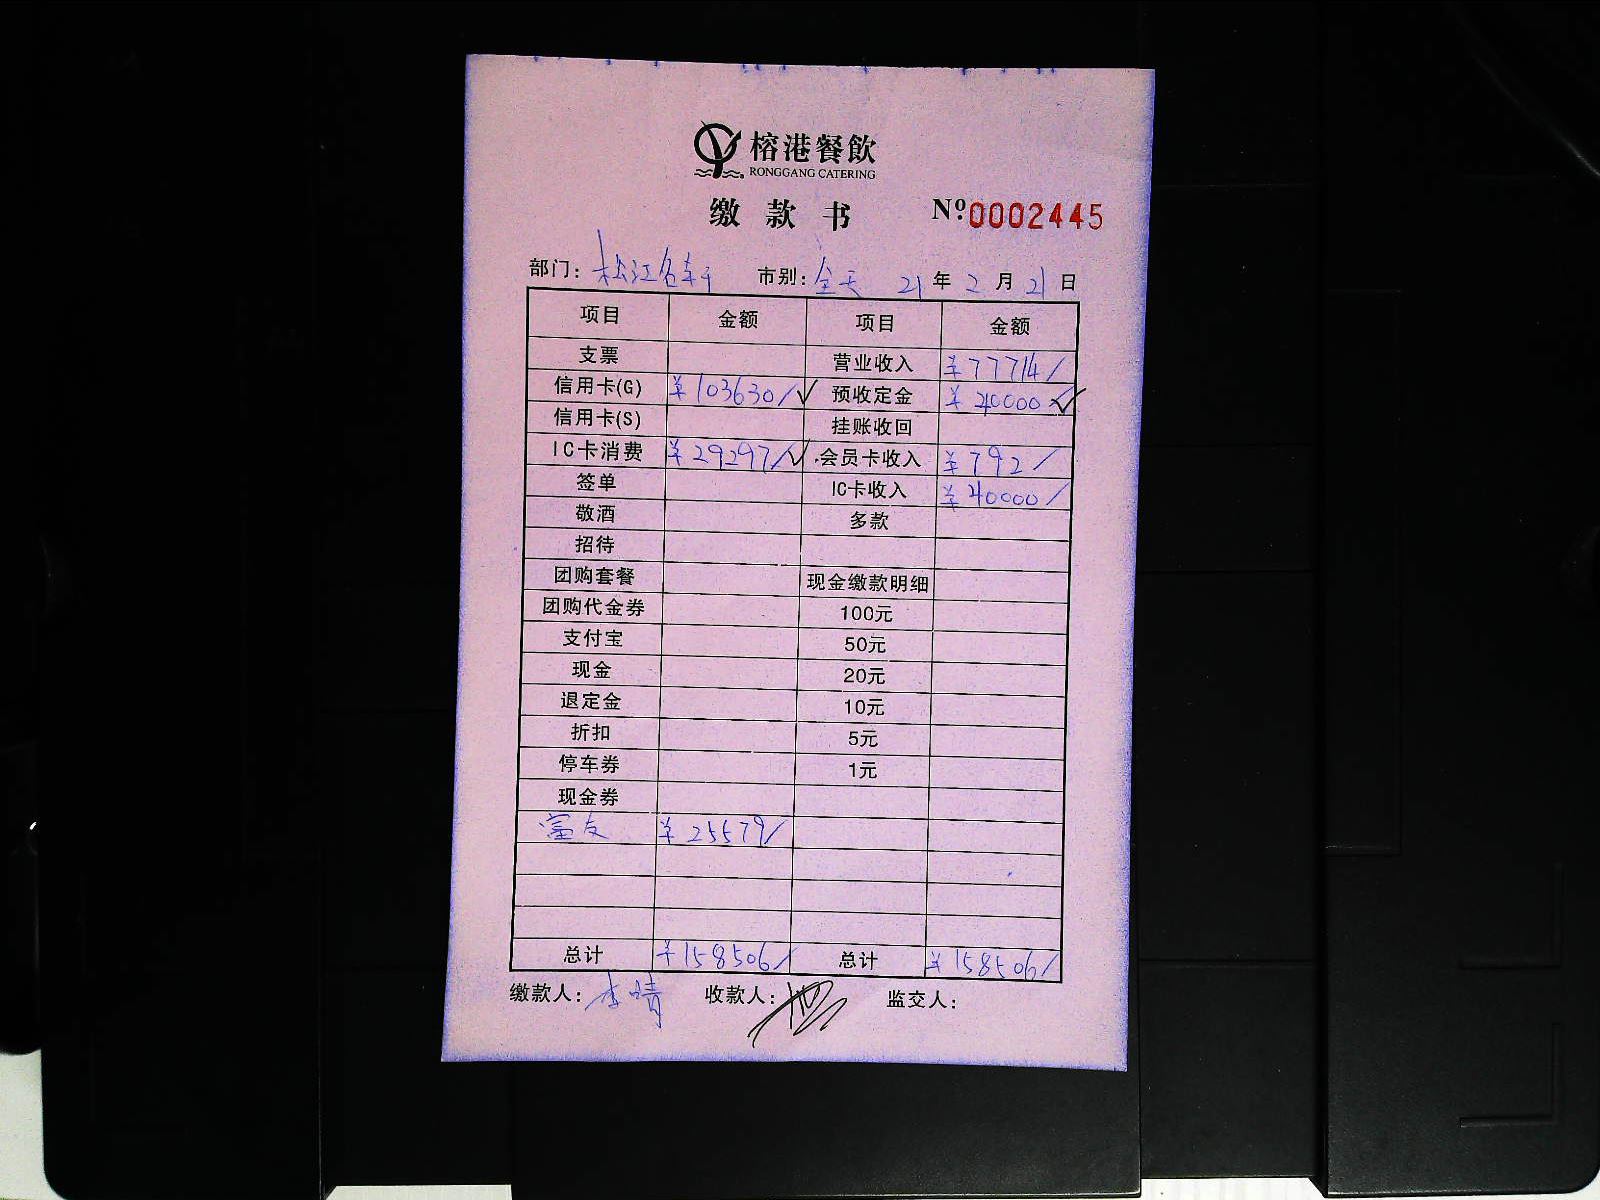 榕港餐飲
RONGGANG CATERING
缴款书 Nº 0002445
部门: 松江名轩 市别: 全天 21年2月21日
项目 金额 项目 金额
支票 营业收入 ¥77714/
信用卡(G) ¥103630/✓ 预收定金 ¥40000✓
信用卡(S) 挂账收回
IC卡消费 ¥29297/✓ 会员卡收入 ¥792/
签单 IC卡收入 ¥40000/
敬酒 多款
招待
团购套餐 现金缴款明细
团购代金券 100元
支付宝 50元
现金 20元
退定金 10元
折扣 5元
停车券 1元
现金券
富友 ¥25579/
总计 ¥158506/ 总计 ¥158506/
缴款人: 李晴 收款人: 监交人: